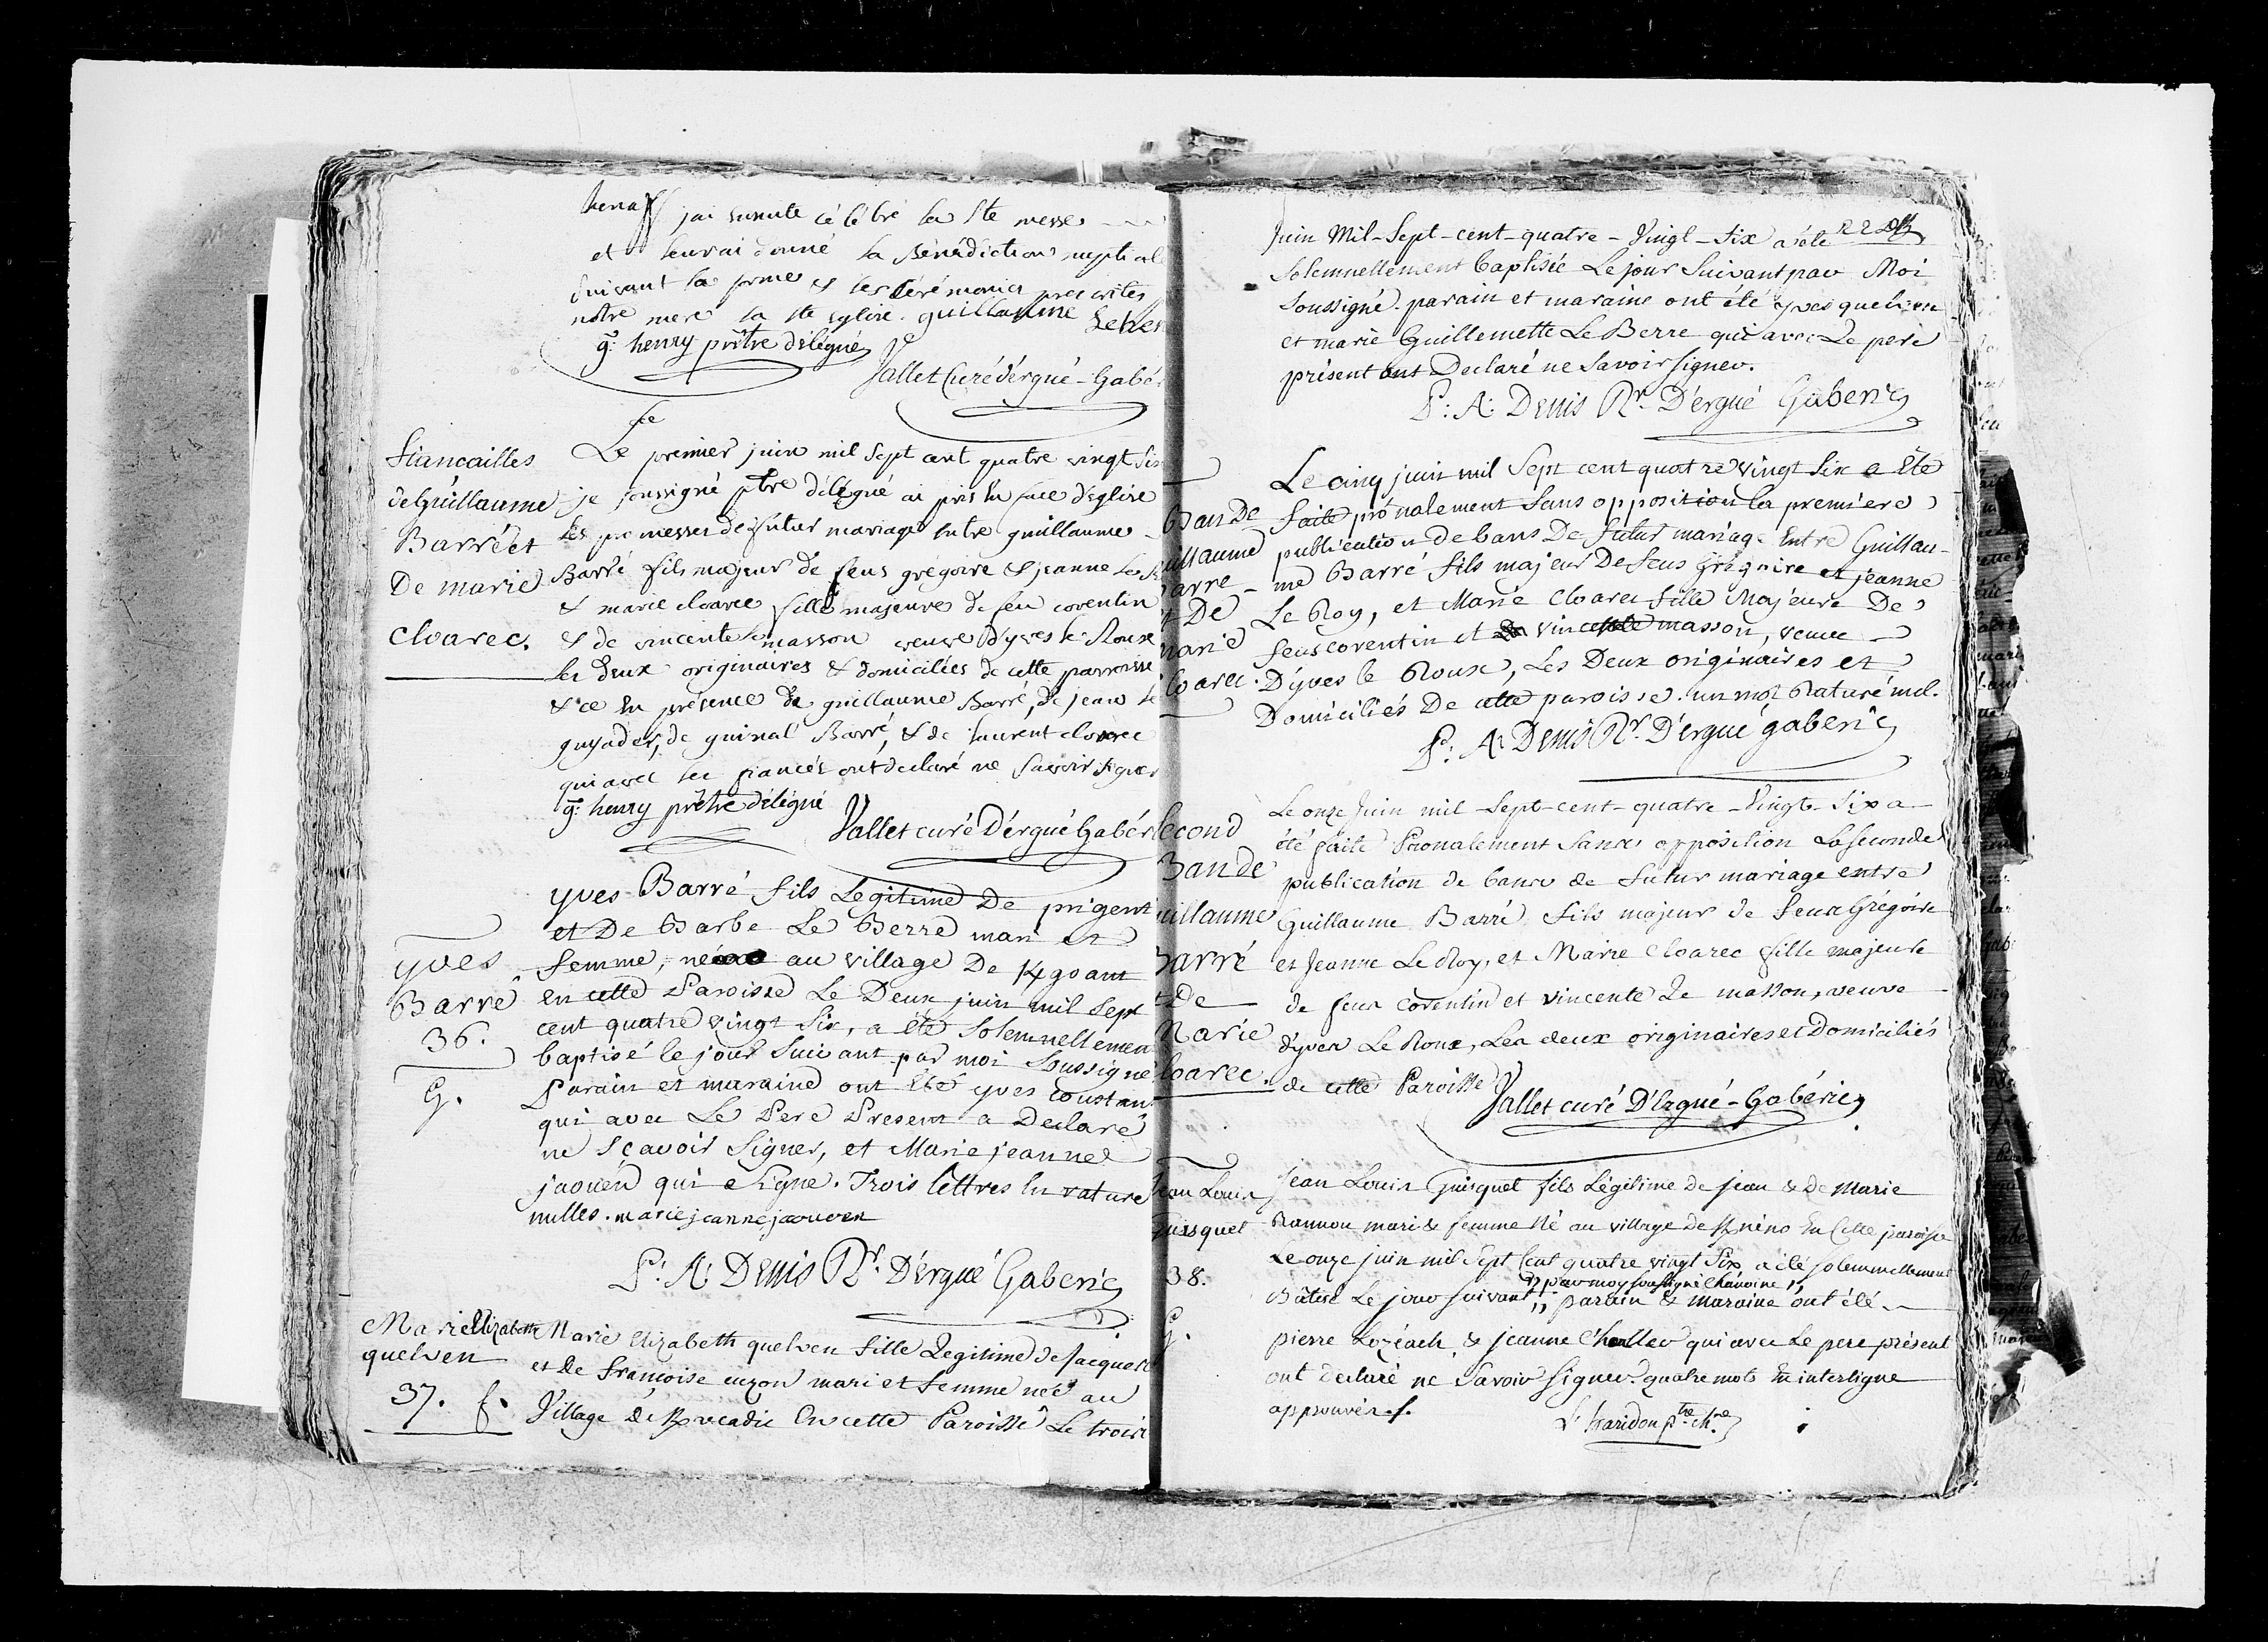 henaff jai ensuite célébré la Ste messe
et leur ai donné la Bénédiction nuptial
suivant la forme et les cérémonies prescrites
notre mere la ste eglise. guillaume Lehen
g: henry prêtre délégué
Jallet Curé d'érgué-Gabér
fiancailles
de Guillaume
Barré et
De marie
cloarec.
Le premier juin mil sept cent quatre vingt six
je soussigné ptre délégué ai pris en face d'eglise
les promesses de futur mariage entre guillaume
Barré fils majeur de feus grégoire & jeanne le
& marie cloarec fille majeure de feu corentin
& de vincente le masson veuve d'yves le Roux
les deux originaires & domiciliés de cette parroisse
& ce en présence de guillaume Barré, de jean le
guyader, de guinal Barré, & de laurent cloarec
qui avec les fiancés ont declaré ne savoir signer
g: henry prêtre délégué
Jallet curé D'érgué Gabér
yves
Barré
36.
G.
yves Barré fils Legitime De prigent
et De Barbe Le Berre mari et
femme, né au village De Kgoant
en cette Paroisse Le Deux juin mil sept
cent quatre vingt six, a été solemnellemen
baptisé le jour suivant par moi soussigné
Parain et maraine ont été yves constan
qui avec Le Pere Present a Declaré
ne sçavoir signer, et Marie jeanne
jaouën qui signe. Trois lettres en rature
nulles. marie jeanne jaouen
P: A: Denis Rr. D'érgué Gaberic
Marie Elizabeth
quelven
37. f.
Marie Elizabeth quelven fille Legitime de Jacques
et de francoise cuzon mari et femme née au
Village de en cette Paroisse Le trois
22
Juin Mil-Sept-cent-quatre-Vingt-Six a été
Solemnellement baptisée Le jour Suivant par Moi
soussigné. parain et maraine ont été yves quelven
et marie Guillemette Le Berre qui avec Le pere
présent ont Declaré ne Savoir signer.
P: A: Denis Rr. D'érgué Gaberic
Ban de
uillaume
arre
De
marie
loarec.
Le cinq juin mil Sept cent quatre vingt six a été
faite prônalement sans opposition la premiere
publication de bans De futur mariage Entre Guillau-
me Barré fils majeur De feus Grégoire et jeanne
Le Roy, et Marie Cloarec fille Majeure De
feus corentin et vincente masson, veuve
D'yves le Roux, Les Deux originaires et
Domiciliés De cette paroisse. un mot Raturé nul.
P: A: Denis Rr. D'érgué gaberic
econd
Ban de
uillaume
Barré
De
Marie
loarec.
Le onze Juin mil-Sept-cent-quatre-Vingt-Six a
été faite Pronalement Sans opposition La Seconde
publication de bans de futur mariage entre
Guillaume Barré fils majeur de feux Grégoire
et Jeanne Le Roy, et Marie Cloarec fille majeure
de feux Corentin et vincente Le masson, veuve
d'yves Le Roux, Les deux originaires et Domiciliés
de cette Paroisse
Jallet curé D'Ergué-Gabéric
Jean Louis
uisquet
38.
G.
Jean Louis Guisquet fils Légitime de jean & De Marie
Rannou mari & femme Né au village de Knéno En Cette paroisse
Le onze juin mil Sept Cent quatre vingt Six a été solemnellement
"par moy soussigné Chanoine"
Batisé Le jour suivant" parain & maraine ont été
pierre Lozéach, & jeanne qui avec Le pere présent
ont déclaré ne Savoir signer. quatre mots En interligne
approuvés.
L'haridon ptre. chne.